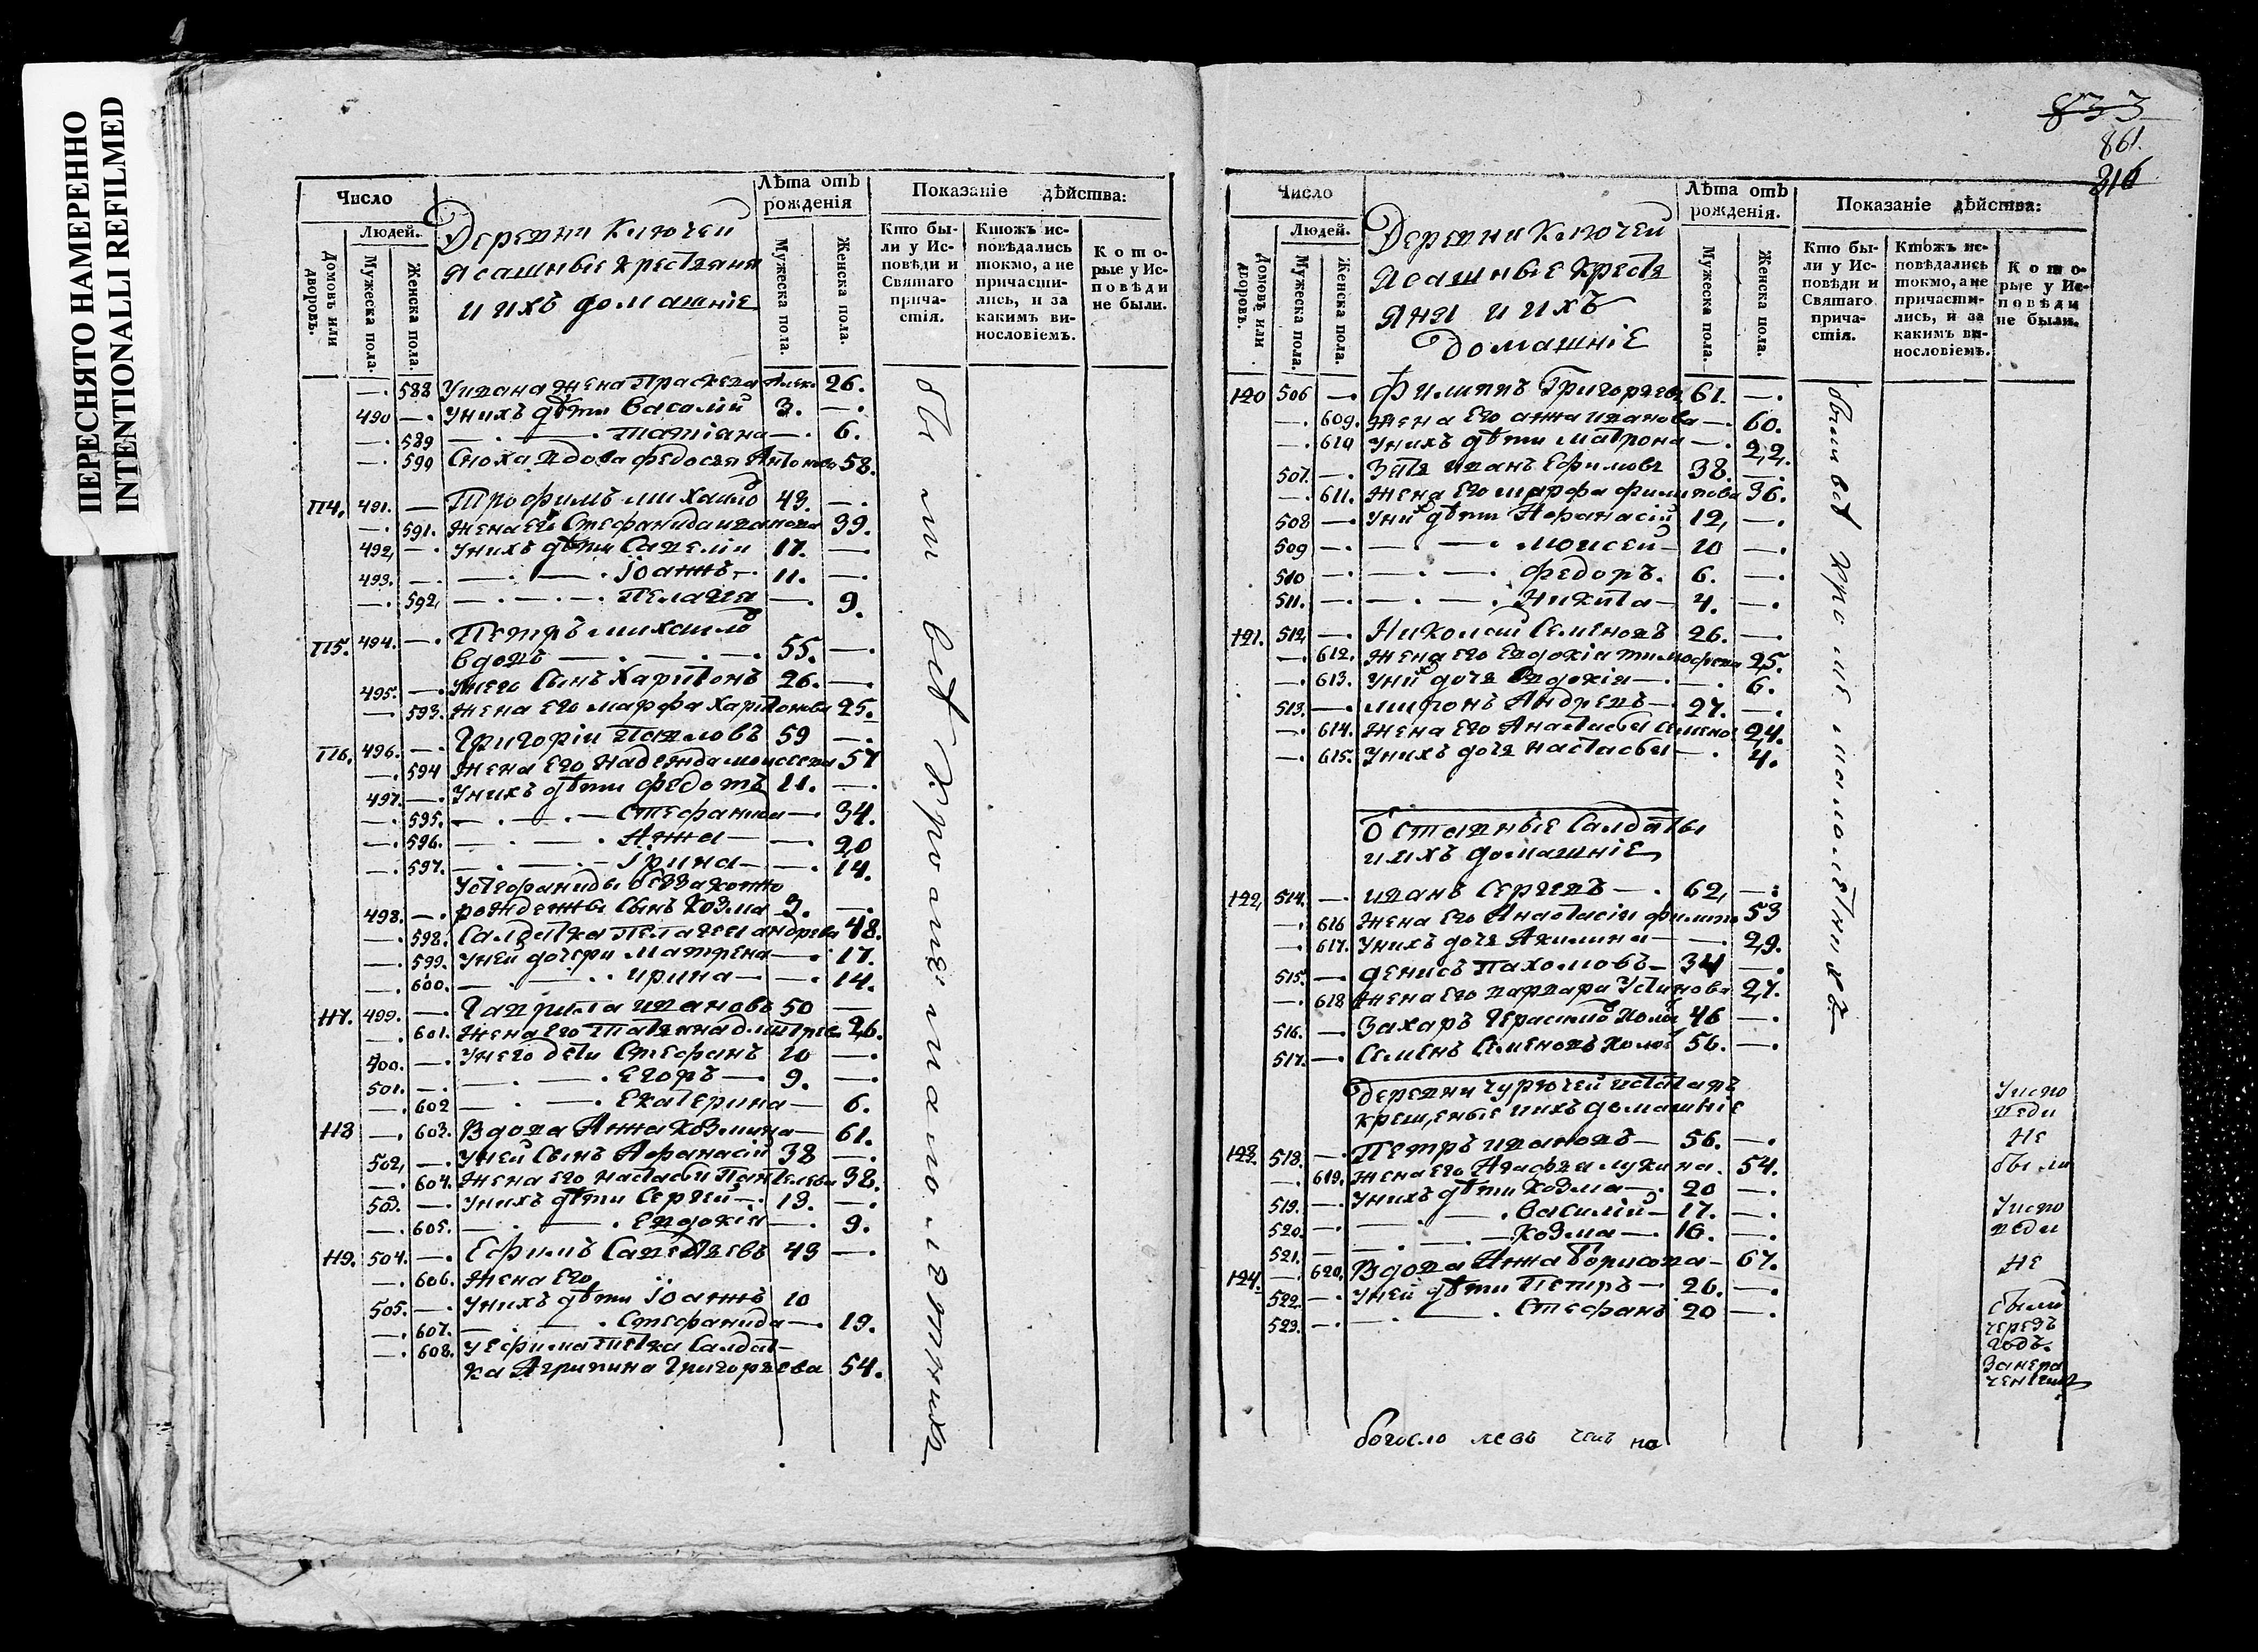 ПЕРЕСНЯТО НАМЕРЕННО
INTENTIONALLI REFILMED
Число
Людей.
Домовъ или дворовъ.
Мужеска пола.
Женска пола.
Деревни Ключей
Ясашные крестяня
и ихъ домашніе
Лѣта отъ рожденія
Мужеска пола.
Женска пола.
Показаніе дѣйства:
Кто бы-
ли у Ис-
повѣди и
Святаго
прича-
стія.
Ктожъ ис-
повѣдались
токмо, а не
причасти-
лись, и за
какимъ ви-
нословіемъ.
Кото-
рые у Ис-
повѣди
не были.
—. 588 Ивана жена Праскева 26.
490 —. У нихъ дѣти Василій 3. —.
—. 589 —.—.— Татіана —. 6.
—. 590 Сноха вдова Федосья Антонова 58.
114. 491. — Трофимъ Михаило 43. —.
—. 591. Жена его Стефанида Иванова 39.
492, —. У нихъ дѣти Савелій 17. —.
493. —. —.—. Іоаннъ —. 11. —.
—. 592, —.—.—. Пелагия —. 9.
115. 494. —. Петръ Михаило
вдовъ —.—.—. 55. —.
495. —. У него сынъ Харитонъ 26. —.
—. 593. Жена его Марфа Харитонова 25.
116. 496. —. Григорій Павловъ 59 —.
—. 594 Жена его Надежда Моисеева 57
497. —. У нихъ дѣти Федотъ 11. —.
—. 595. —.—.— Стефанида —. 34.
—. 596. —.—. Анна — —. 20
—. 597. —.—.— Ірина — —. 14.
У Стефаниды беззаконно
498. —. рожденны сынъ Козма 3. —.
—. 598. Салдатка Пелагея Андреева 48.
—. 599. У ней дочери Матрена — —. 17.
—. 600. —.—.—. Ирина — —. 14.
117. 499. —. Гаврила Ивановъ 50 —
—. 601. Жена его Татьяна 26.
400. —. У него дети Стефанъ 10 —.
501. —. —.—. Егоръ —. 9. —.
—. 602 —.—. Екатерина — 6.
118 —. 603. Вдова Анна Козмина — 61.
502, —. У ней сынъ Афанасій 38 —.
—. 604. Жена его Настасья 38.
503. —. У нихъ дѣти Сергей —. 13. —.
—. 605. —.—. Евдокія —. 9.
119. 504. —. Ефимъ Савельевъ 43 —.
—. 606. Жена его
505. —. У нихъ дѣти Іоаннъ 10
—. 607. —.—. Стефанида —. 19.
—. 608. У Ефима тетка салдат-
ка Агрипина Григорьева 54.
были всѣ кроме малолѣтнихъ
833
861.
216
Число
Людей.
Домовъ или дворовъ.
Мужеска пола.
Женска пола.
Деревни Ключей
Ясашные крестя
яня и ихъ
домашніе
Лѣта отъ рожденія.
Мужеска пола.
Женска пола.
Показаніе дѣйства:
Кто бы-
ли у Ис-
повѣди и
Святаго
прича-
стія.
Ктожъ ис-
повѣдались
токмо, а не
причасти-
лись, и за
какимъ ви-
нословіемъ.
Кото-
рые у Ис-
повѣди
не были.
120 506 —. Филиппъ Григорьевъ 61. —.
—. 609. Жена его Анна Иванова —. 60.
—. 610 У нихъ дѣти Матрона —. 22.
507. —. Зять Иванъ Ефимовъ 38. —.
—. 611. Жена его Марфа Филипова 36.
508 —. У них дѣти Афанасій 12, —.
509 —. —.—. Моисей — 10 —.
510 —. —.—. Федоръ. 6. —.
511. —. —.—. Никита — 4. —.
121. 512, —. Николай Семеновъ 26. —.
—. 612. Жена его Евдокіа Тимофеева 25.
—. 613. У них дочь Евдокія —. —. 6.
513. —. Миронъ Андреевъ —. 27. —.
—. 614. Жена его Анастасья Семенов 24.
—. 615. У нихъ дочь Настасья — —. 4.
Отставные салдаты
и ихъ домашніе
122, 514. —. Иванъ Сергеевъ —. 62, —.
—. 616 Жена его Анастасіи 53
—. 617. У нихъ дочь Акилина — —. 29.
515. —. Денисъ Пахомовъ — 34 —.
—. 618 Жена его Варвара Устинова 27.
516. —. Захаръ Герасимо холос 46 —.
517. —. Семенъ Семеновъ холос 56. —.
Деревни из татаръ
крещеные и ихъ домашніе
123. 518. —. Петръ Ивановъ — 56. —.
—. 619. Жена его Агафья Лукина. 54.
519. —. У нихъ дѣти Козма —. 20 —.
520. —. —.—. Василій — 17. —.
521. —. —.—. Козма —. 16. —.
124. —. 620. Вдова Анна Борисова — 67.
522. —. У ней дѣти Петръ —. 26. —.
523. —. —.—. Стефанъ 20 —.
были всѣ кроме малолѣтнихъ
У испо
веди
не
были
У испо
веди
не
были
чрезъ
годъ.